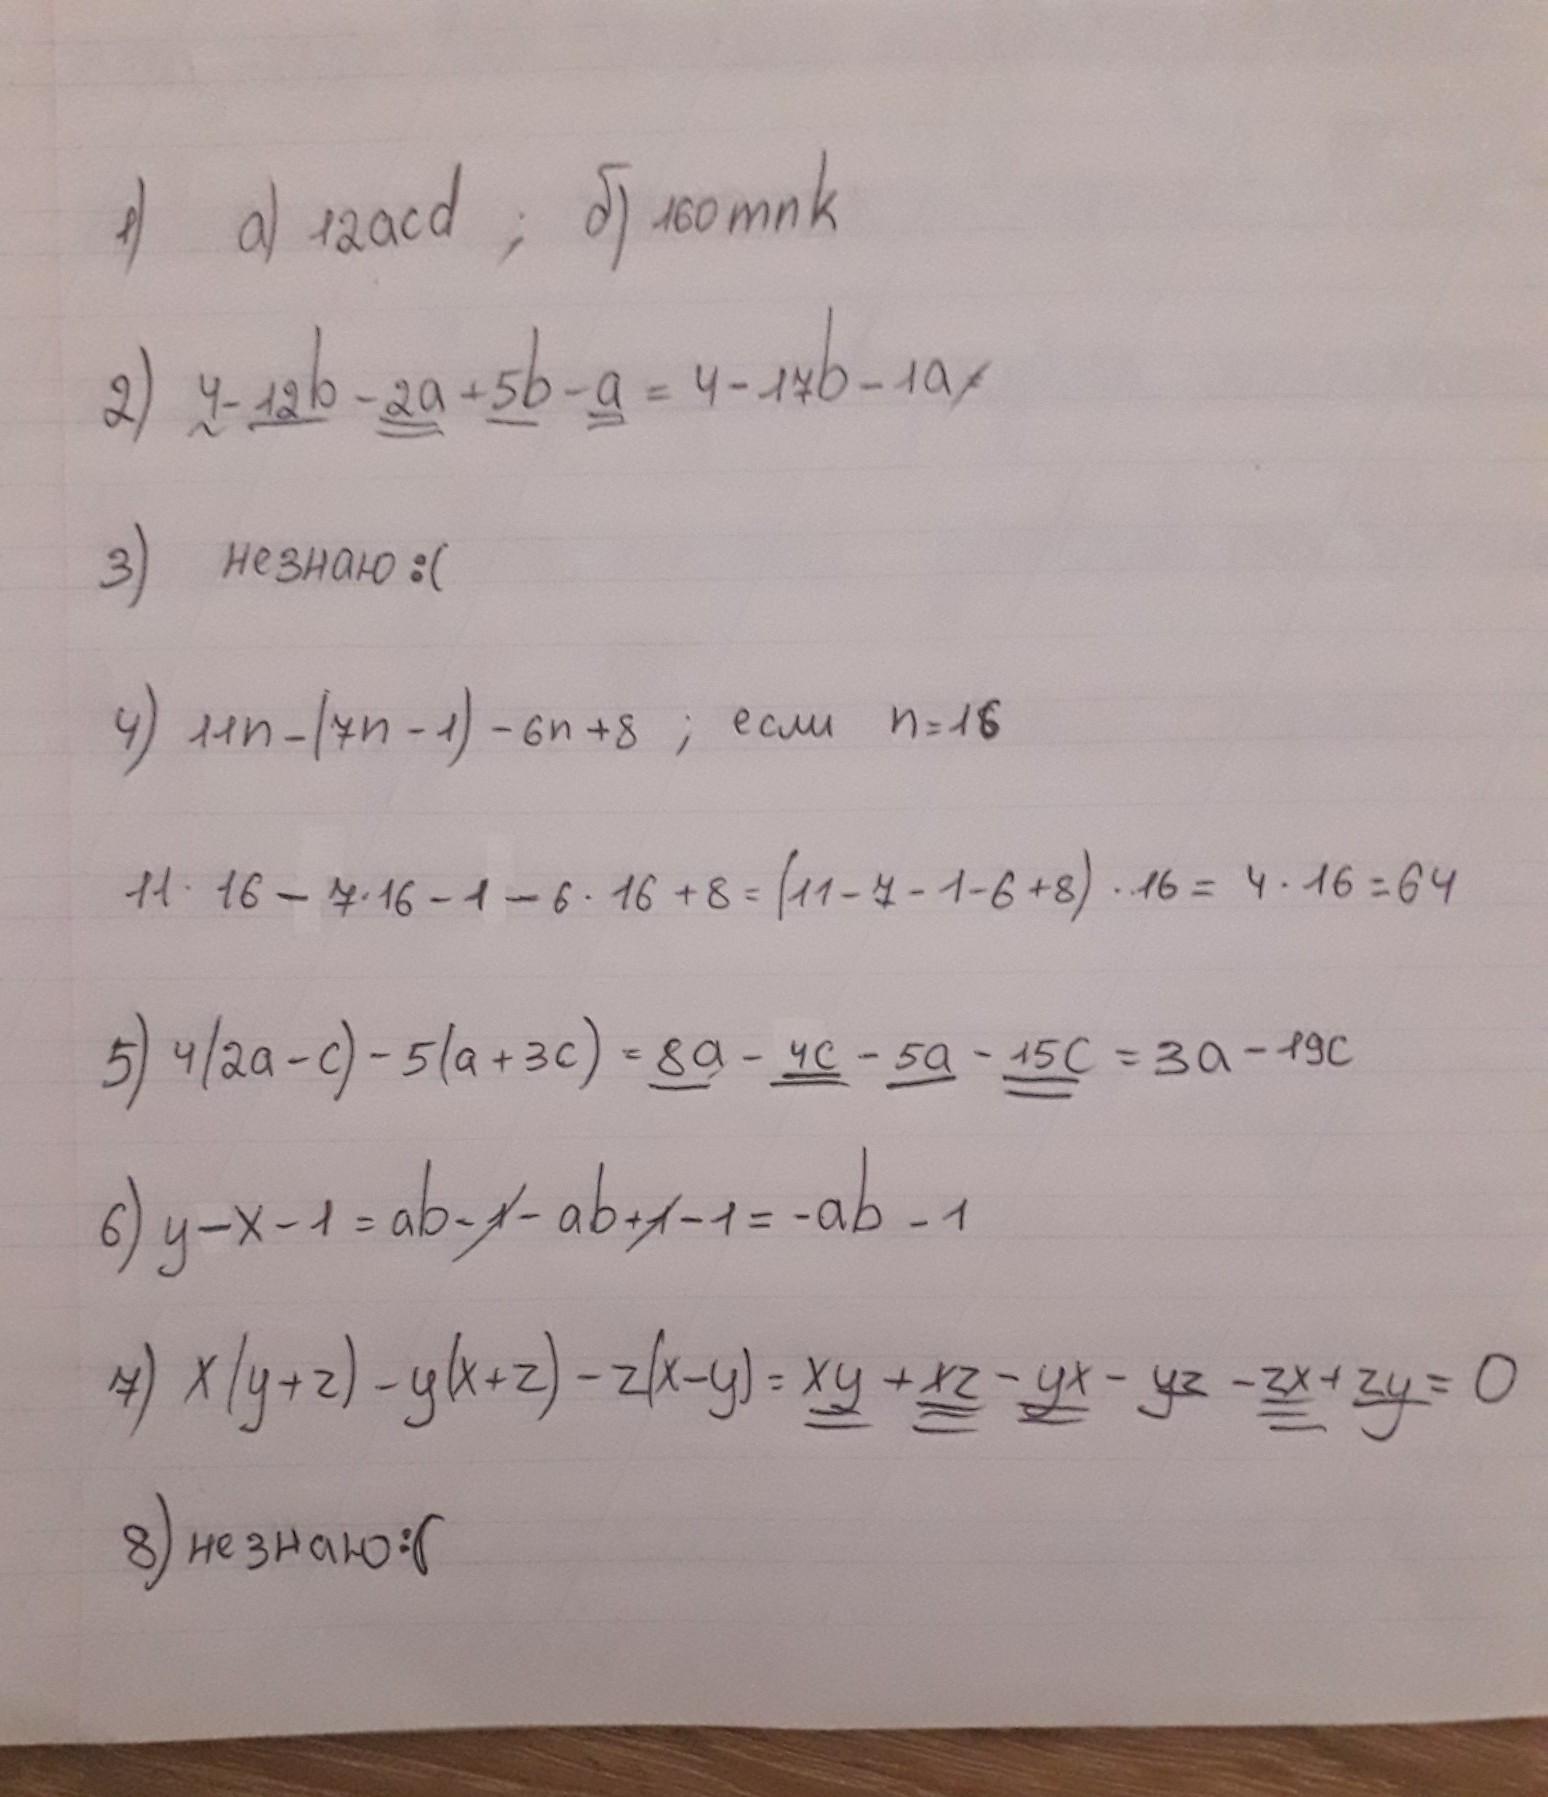 1) а) 12acd ; б) 160mnk
2) 4-12b-2a+5b-a=4-17b-1a
3) незнаю:(
4) 11n-(7n-1)-6n+8 ; если n=16
11·16-7·16-1-6·16+8=(11-7-1-6+8)·16=4·16=64
5) 4(2a-c)-5(a+3c)=8a-4c-5a-15c=3a-19c
6) y-x-1=ab-1-ab+1-1=-ab-1
7) x(y+z)-y(x+z)-z(x-y)=xy+xz-yx-yz-zx+zy=0
8) незнаю:(